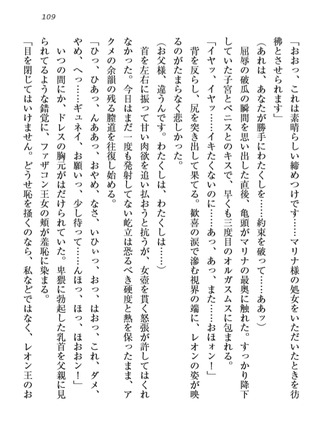 109
「おおっ、これは素晴らしい締めつけです……マリナ様の処女をいただいたときを彷
彿とさせられます」
(あれは、あなたが勝手にわたくしを……約束を破って……ああッ)
屈辱の破瓜の瞬間を思い出した直後、亀頭がマリナの最奥に触れた。すっかり降下
していた子宮とペニスとのキスで、早くも三度目のオルガスムスに包まれる。
「イヤッ、イヤッ……イキたくないのに……あっ、あっ、また……おほォン！」
背を反らし、尻を突き出して果てる。歓喜の涙で滲む視界の端に、レオンの姿が映
るのがたまらなく悲しかった。
「お父様、違うんです。わたくしは、わたくしは……」
首を左右に振って甘い肉欲を追い払おうと抗うが、女壺を貫く怒張が許してはくれ
なかった。今日はまだ一度も発射してない屹立は恐るべき硬度と熱を保ったまま、ア
クメの余韻の残る膣道を往復し始める。
「ひっ、ひあっ、んああっ、おやめ、なさ、いひぃっ、おっ、はおっ、これ、ダメ、
やめ、へっ……ギュネイ、お願いっ、少し待って……んほっ、ほっ、ほおおン！」
いつの間にか、ドレスの胸元がはだけられていた。卑猥に勃起した乳首を父親に見
られてるような錯覚に、ファザコン王女の頬が羞恥に染まる。
「目を閉じてはいけません。どうせ恥を掻くのなら、私などではなく、レオン王のお